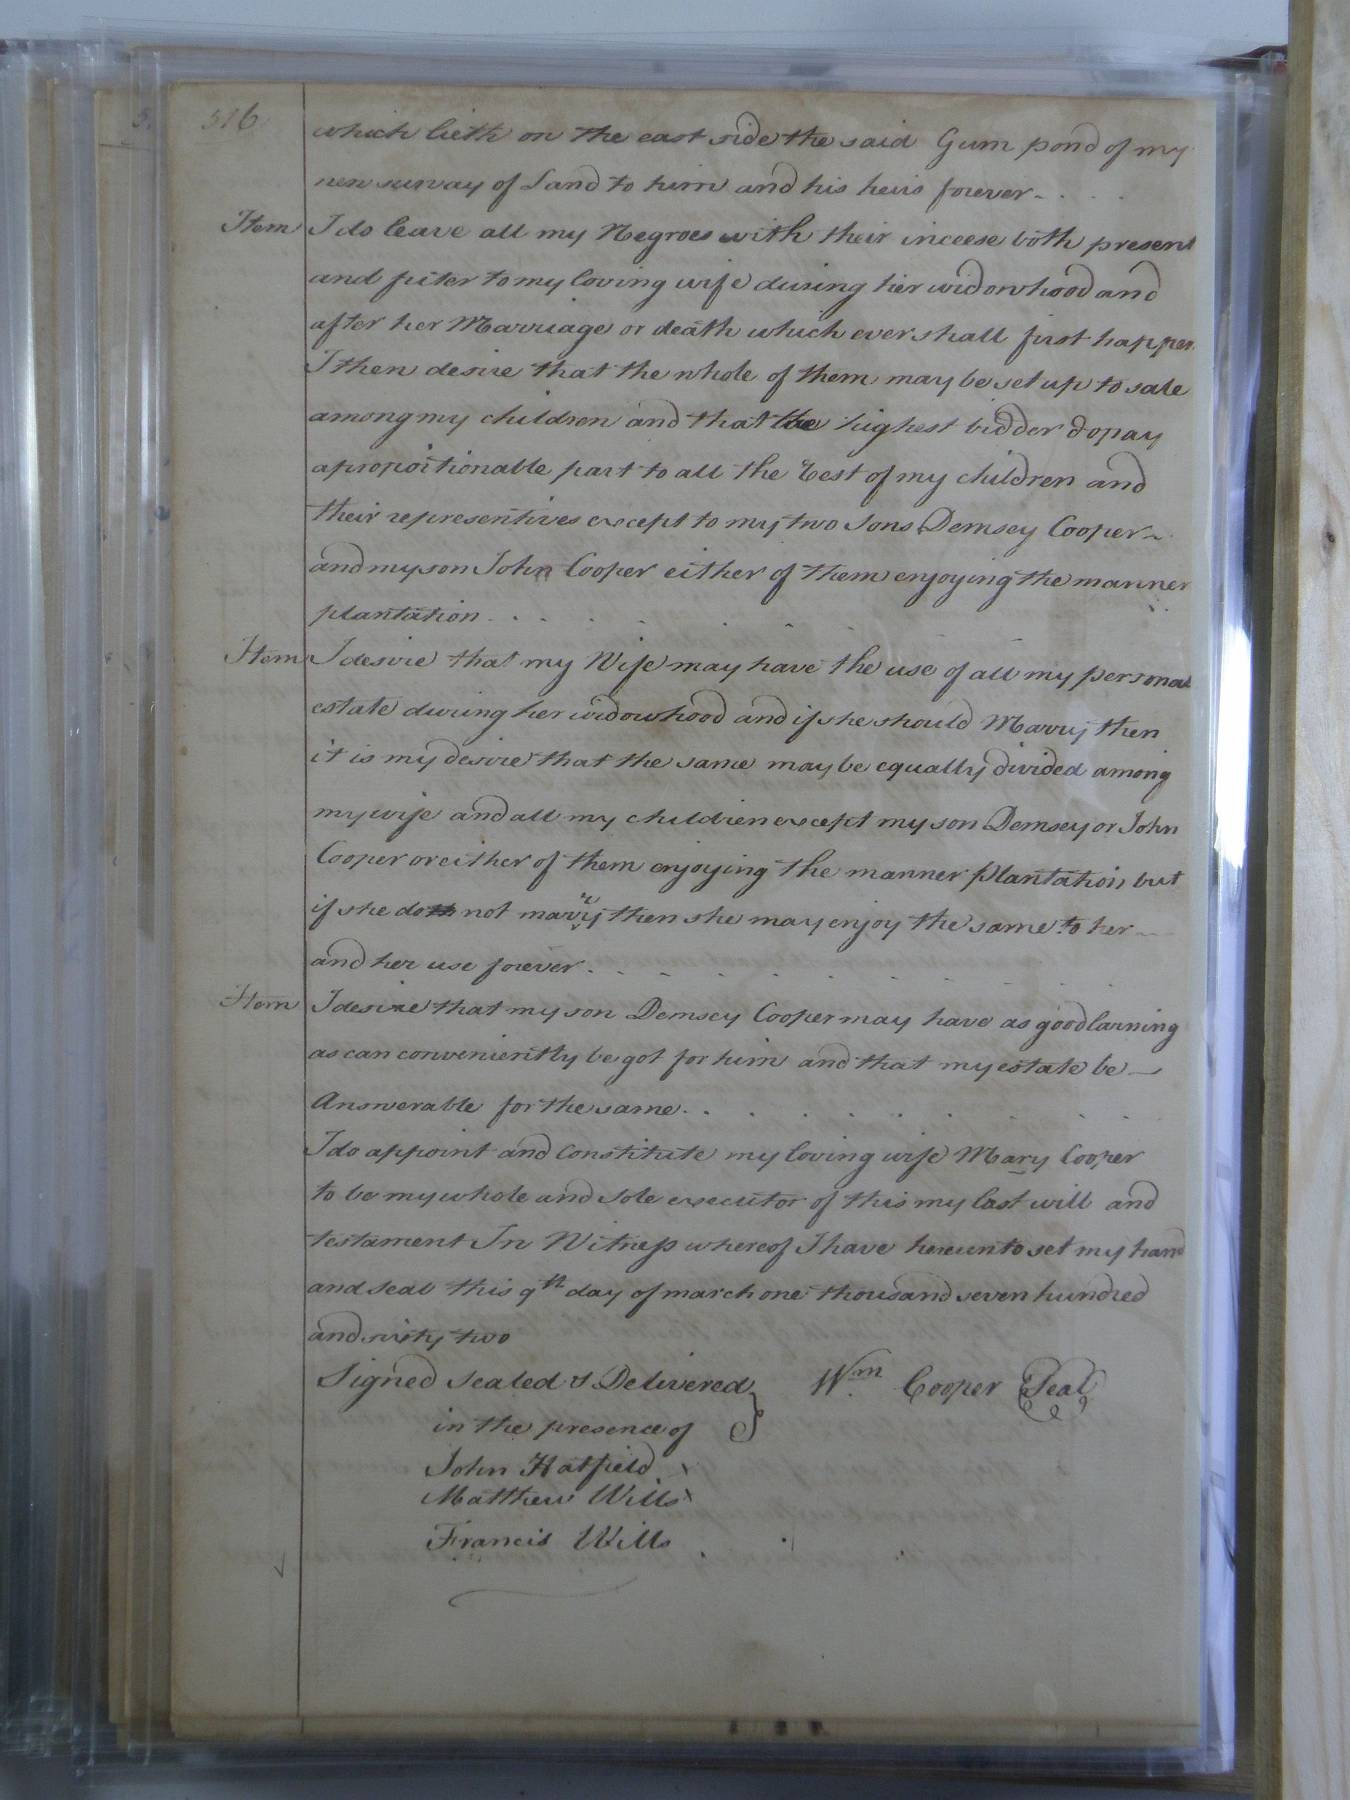 516
which lieth on the east side the said Gum pond of my
new survay of Land to him and his heirs forever
Item I do leave all my Negroes with their increese both present
and futer to my loving wife during her widowhood and
after her Marriage or death which ever shall first happen
I then desire that the whole of them may be set up to sale
among my children and that the highest bidder do pay
a proportionable part to all the rest of my children and
their representives except to my two Sons Demsey Cooper
and my son John Cooper either of them enjoying the manner
plantation
Item I desire that my Wife may have the use of all my personal
estate during her widowhood and if she should Marry then
it is my desire that the same may be equally divided among
my wife and all my children except my son Demsey or John
Cooper or either of them enjoying the manner plantation but
if she doth not marry then she may enjoy the same to her
and her use forever
Item I desire that my son Demsey Cooper may have as good larning
as can conveniently be got for him and that my estate be
Answerable for the same
I do appoint and Constitute my loving wife Mary Cooper
to be my whole and Sole executor of this my last will and
testament In Witness whereof I have hereunto set my hand
and seal this 9th day of march one thousand seven hundred
and sixty two
Signed Sealed & Delivered } Wm Cooper Seal
in the presence of
John Hatfield
Matthew Wills
Francis Wills